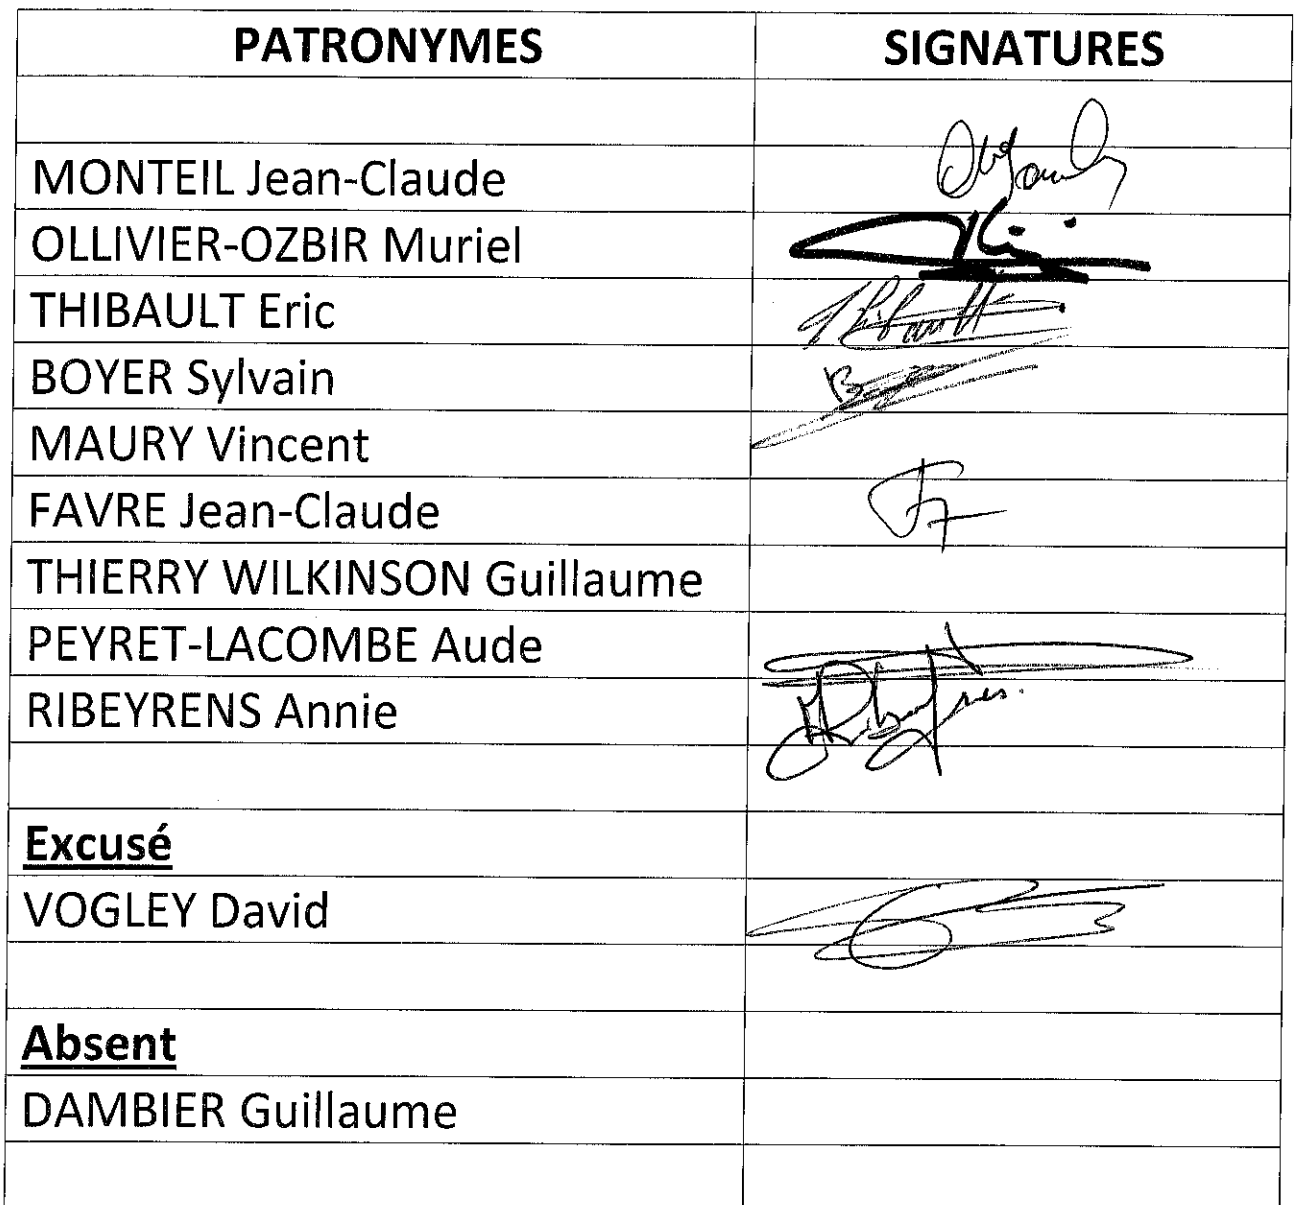 PATRONYMES SIGNATURES
MONTEIL Jean-Claude
OLLIVIER-OZBIR Muriel
THIBAULT Eric
BOYER Sylvain
MAURY Vincent
FAVRE Jean-Claude
THIERRY WILKINSON Guillaume
PEYRET-LACOMBE Aude
RIBEYRENS Annie
Excusé
VOGLEY David
Absent
DAMBIER Guillaume